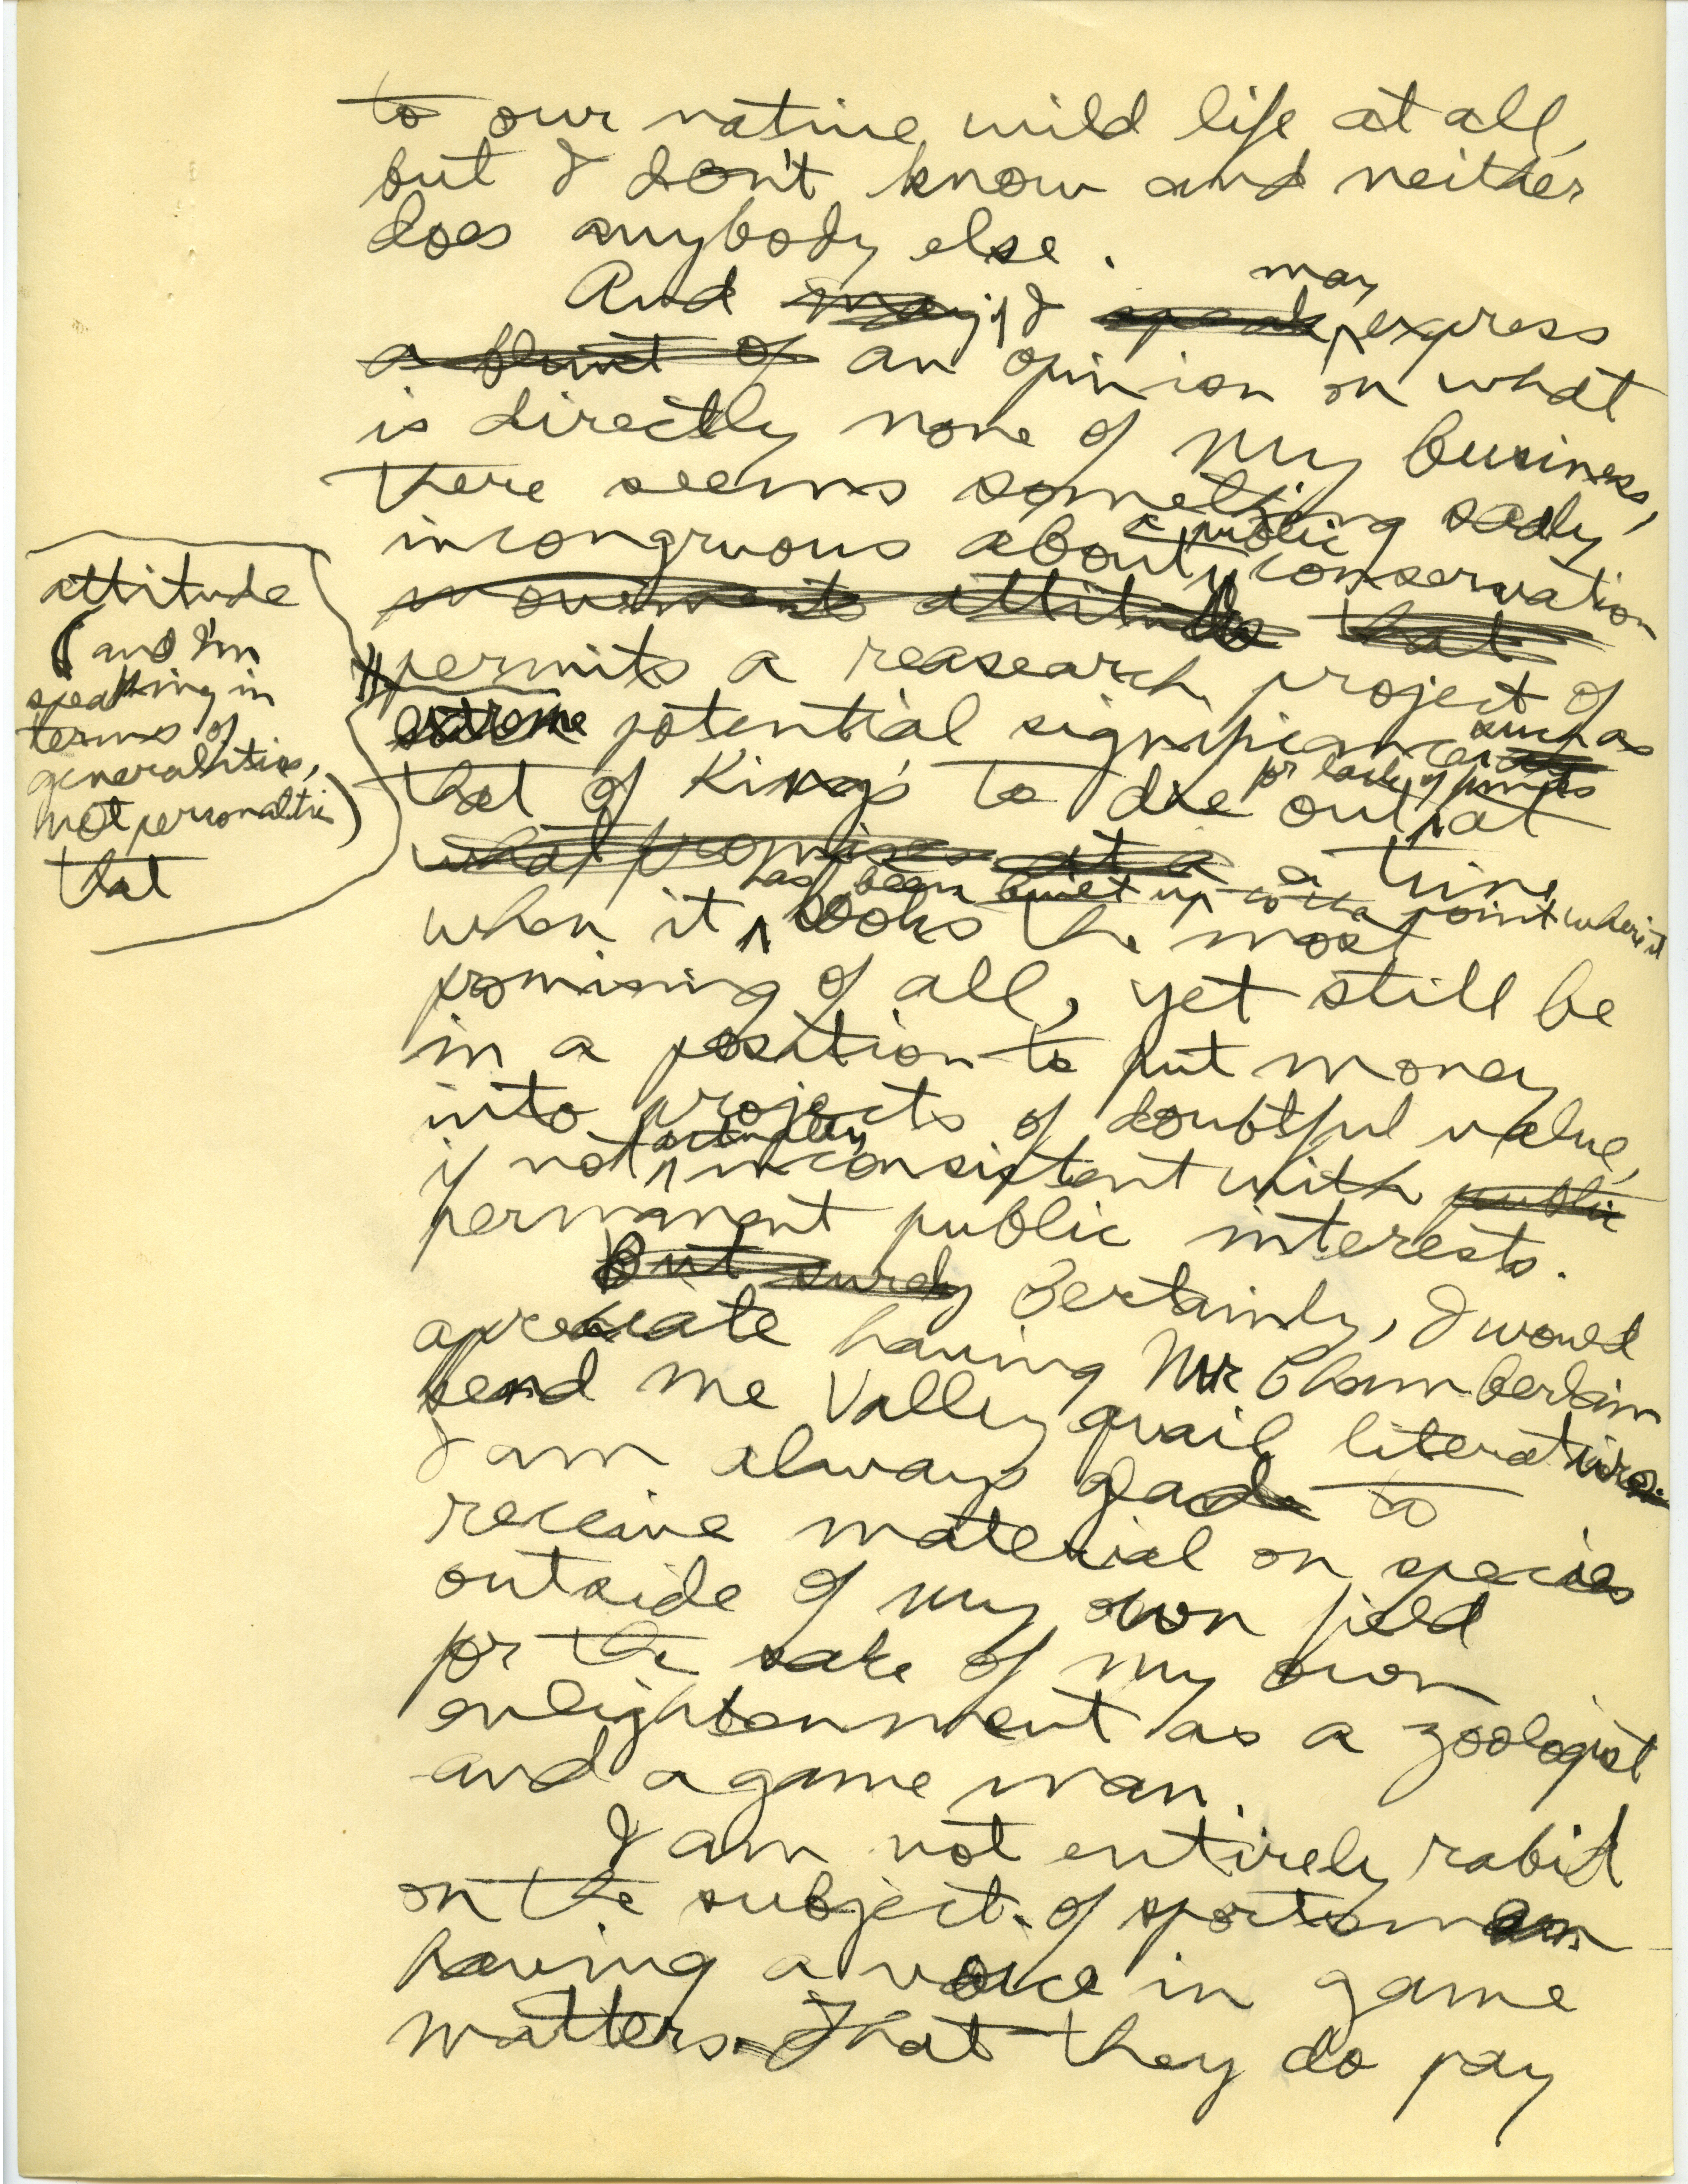 to our native wild life at all,
but I don't know and neither
does anybody else.
And may if I speak may express
a blunt of an opinion on what
is directly none of my business,
there seems something sadly
incongruous about a public conservation
movements attitude that
attitude
(and I'm
speaking in
terms of
generalities,
not personalities)
that
permits a reasearch project of
extreme potential significance such as
that of King's to die out for lack of funds at
what promises at a a time
when it has been built up to the point where it looks the most
promising of all, yet still be
in a position to put money
into projects of doubtful value,
if not actually inconsistent with public
permanent public interests.
But surely Certainly, I would
apreciate having Mr Chamberlain
send me Valley quail literature.
I am always glad to
receive material on species
outside of my own field
for the sake of my own
enlightenment as a zoologist
and a game man.
I am not entirely rabid
on the subject of sportsmen
having a voice in game
matters. That they do pay